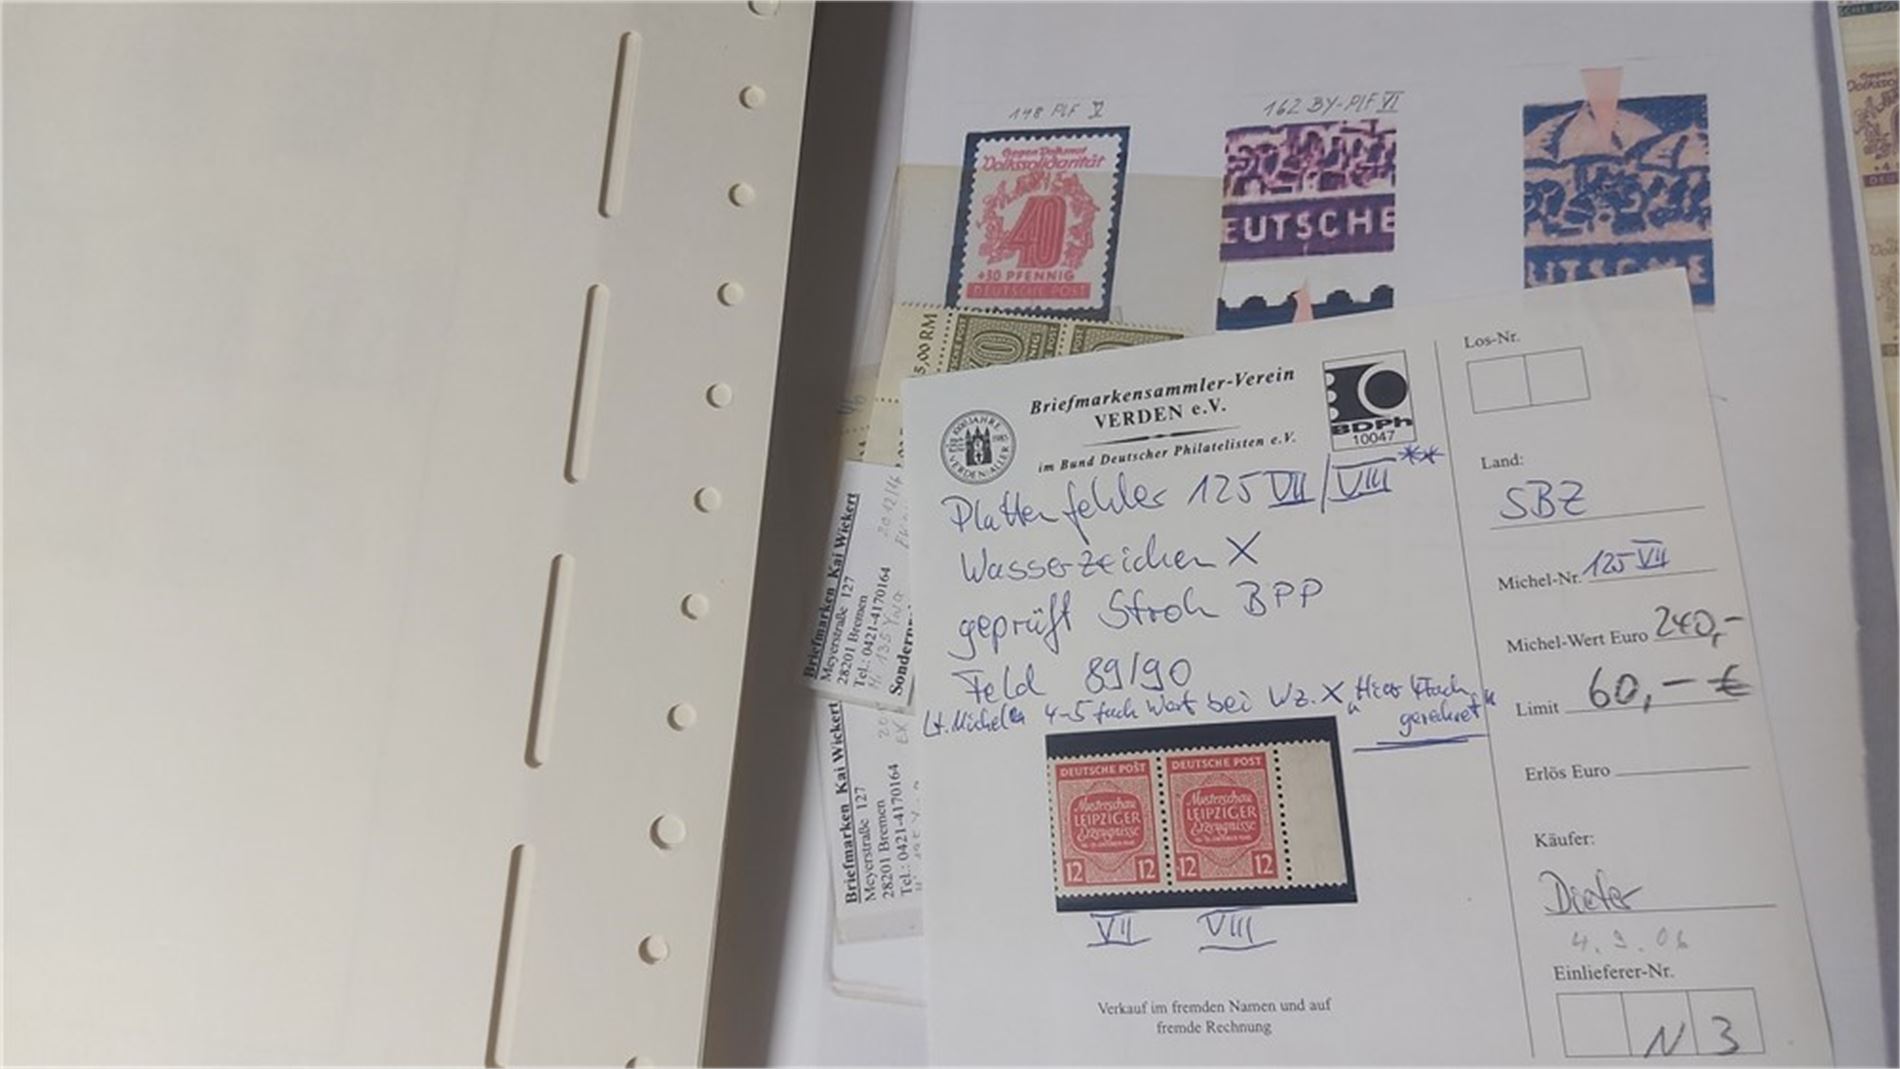 148 PLF V
162 BY-PLF VI
Gegen Volksnot
Volkssolidarität
40
+30 PFENNIG
DEUTSCHE POST
EUTSCHE
UTSCHE
5,00 RM
Briefmarkensammler-Verein
VERDEN e.V.
im Bund Deutscher Philatelisten e.V.
BDPh
10047
Plattenfehler 125 VII/VIII **
Wasserzeichen X
geprüft Ströh BPP
Feld 89/90
Lt. Michel 4-5 fach Wert bei Wz. X "Hier 4fach
gerechnet"
DEUTSCHE POST
Musterschau
LEIPZIGER
Erzeugnisse
12 12
DEUTSCHE POST
Musterschau
LEIPZIGER
Erzeugnisse
12 12
VII VIII
Verkauf im fremden Namen und auf
fremde Rechnung
Los-Nr.
Land:
SBZ
Michel-Nr. 125 VII
Michel-Wert Euro 240,-
Limit 60,- €
Erlös Euro
Käufer:
Dieter
4.9.06
Einlieferer-Nr.
N 3
Briefmarken Kai Wickert
Meyerstraße 127
28201 Bremen
Tel.: 0421-4170164
Briefmarken Kai Wickert
Meyerstraße 127
28201 Bremen
Tel.: 0421-4170164